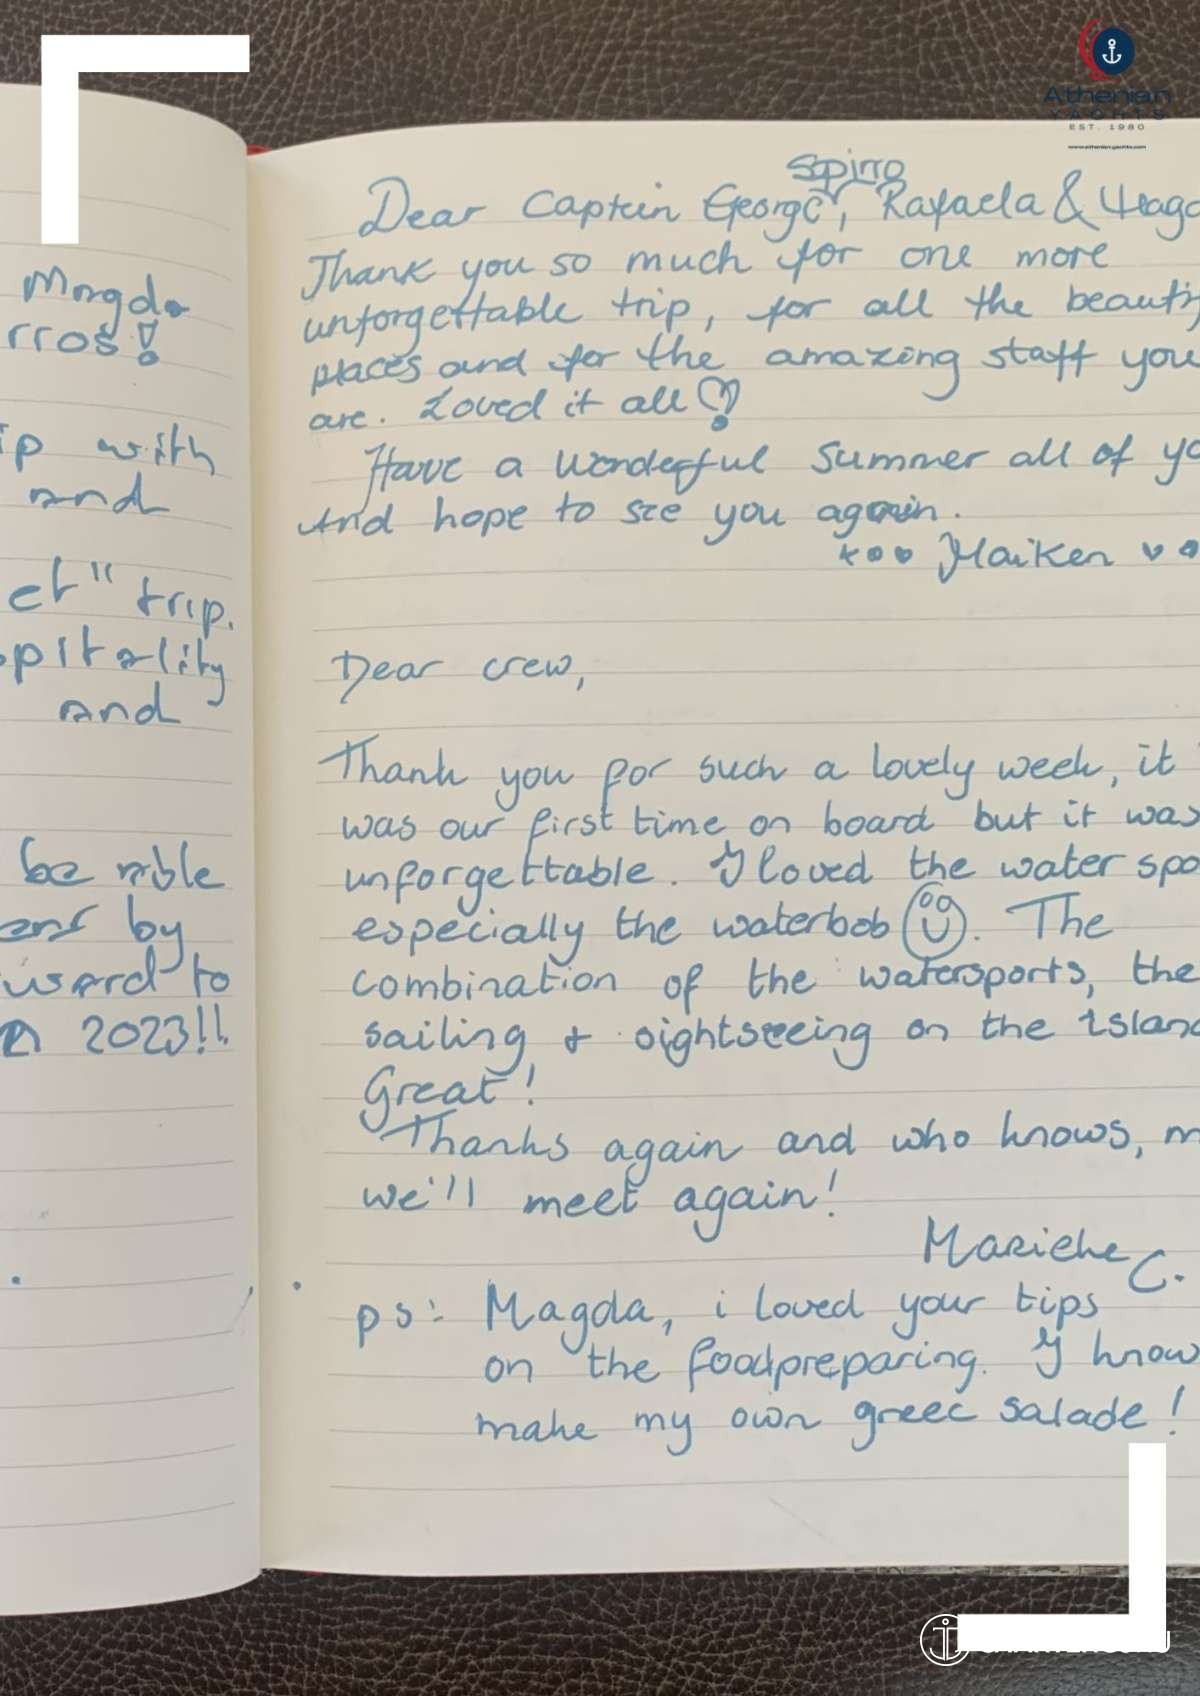 Athenian
YACHTS
EST. 1980
www.athenian.yachts.com
Magda
rros!
ip with
and
et" trip.
spitality
and
be able
by
ward to
2023!!
Spirro
Dear Captein George, Rafaela &
Thank you so much for one more
unforgettable trip, for all the beauti
places and for the amazing staff you
are. Loved it all
Have a wonderful summer all of yo
And hope to see you again.
Maiken
Dear crew,
Thank you for such a lovely week, it
was our first time on board but it was
unforgettable. I loved the water spo
especially the waterbob. The
combination of the watersports, the
sailing + sightseeing on the island
Great!
Thanks again and who knows, m
we'll meet again!
Marieke C.
ps: Magda, i loved your tips
on the foodpreparing. I know
make my own greec salade!